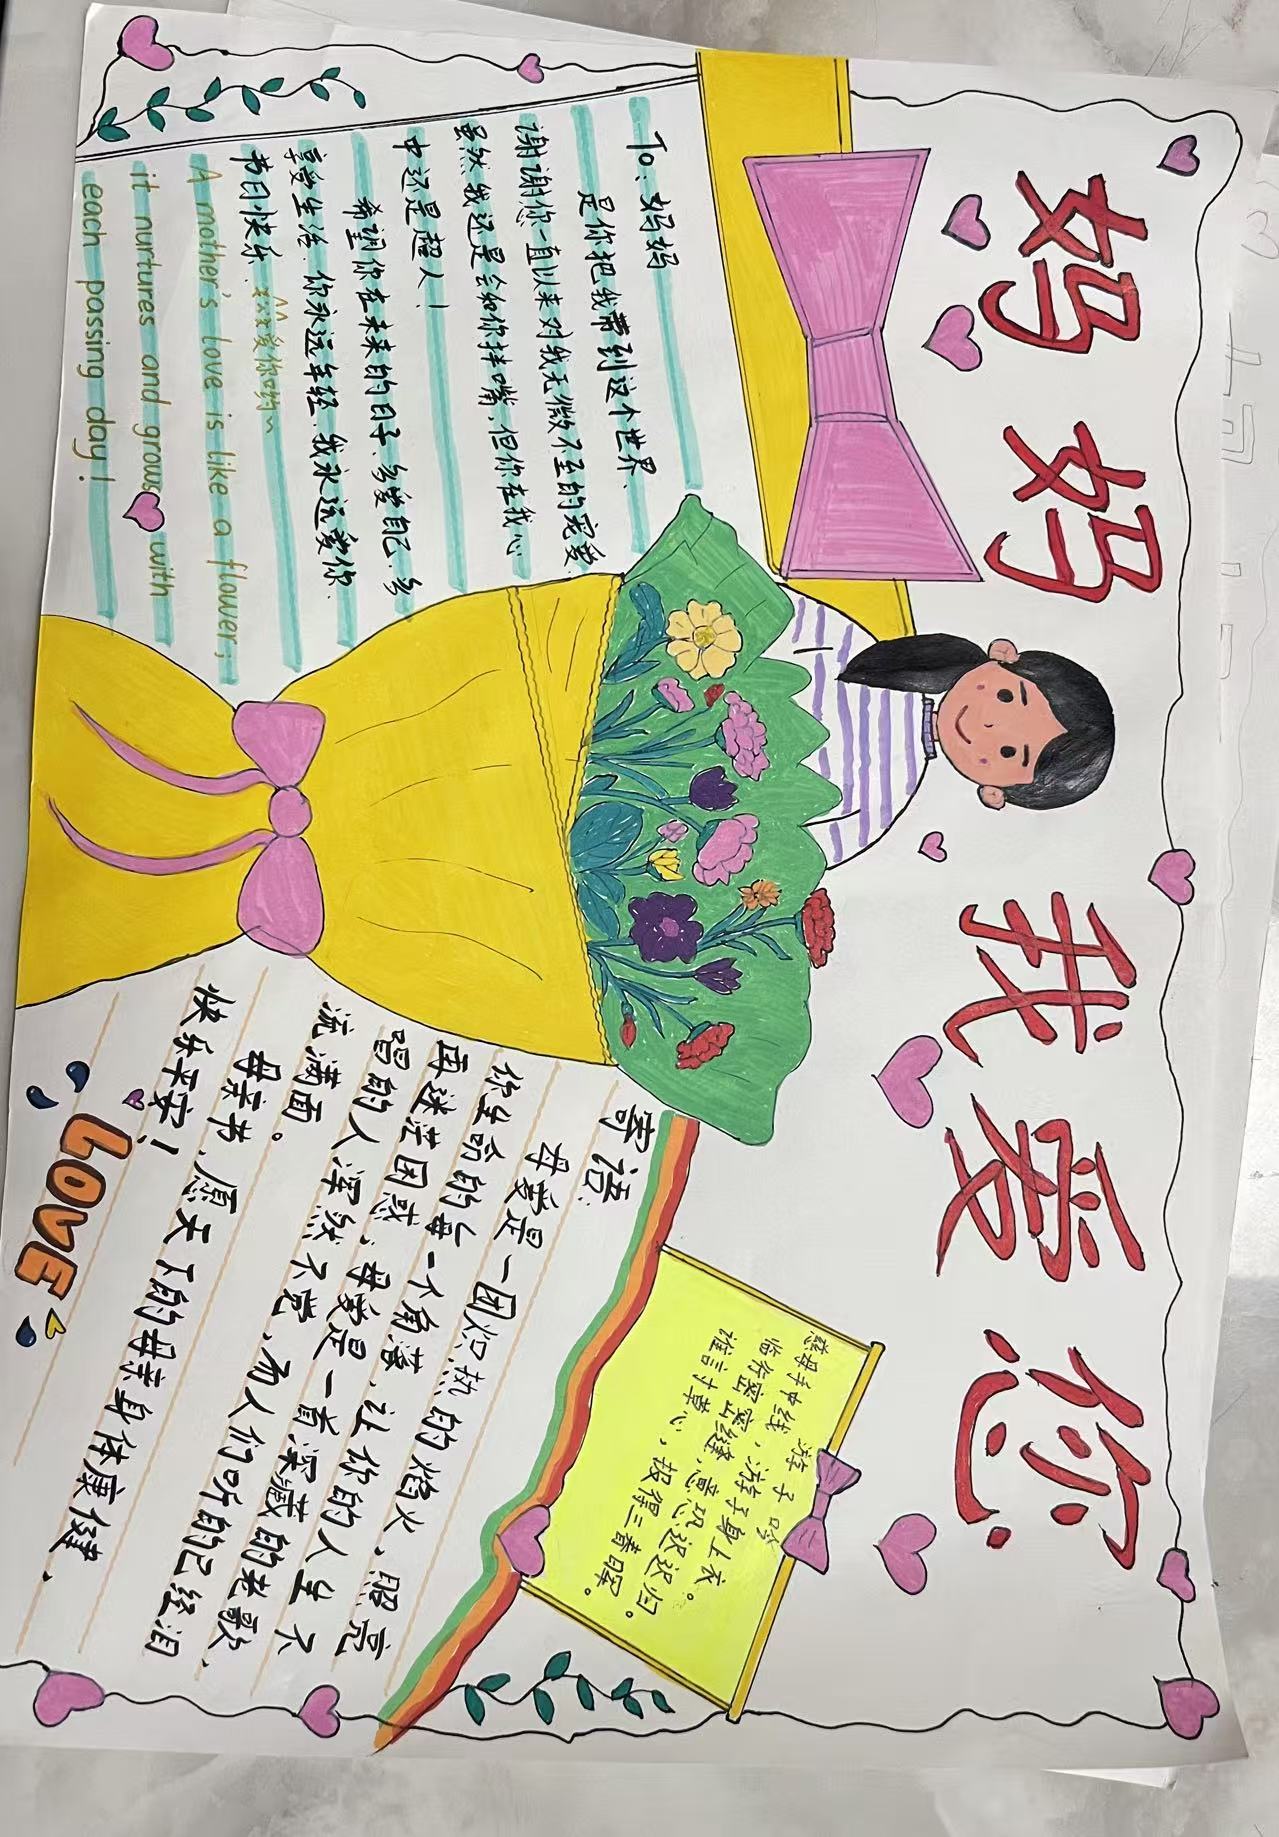 妈妈我爱您
To：妈妈
是你把我带到这个世界、
谢谢你一直以来对我无微不至的宠爱.
虽然我还是会和你拌嘴，但你在我心
中还是超人！
希望你在未来的日子、多爱自己、多
享受生活、你永远年轻、我永远爱你.
节日快乐. 爱你哟~
A mother's love is like a flower;
it nurtures and grows with
each passing day!
游子吟
慈母手中线，游子身上衣。
临行密密缝，意恐迟迟归。
谁言寸草心，报得三春晖。
寄语：
母爱是一团炽热的焰火、照亮
你生命的每一个角落、让你的人生不
再迷茫困惑、母爱是一首深藏的老歌、
唱的人浑然不觉、而人们听的已经泪
流满面。
母亲节、愿天下的母亲身体康健、
快乐平安！
LOVE